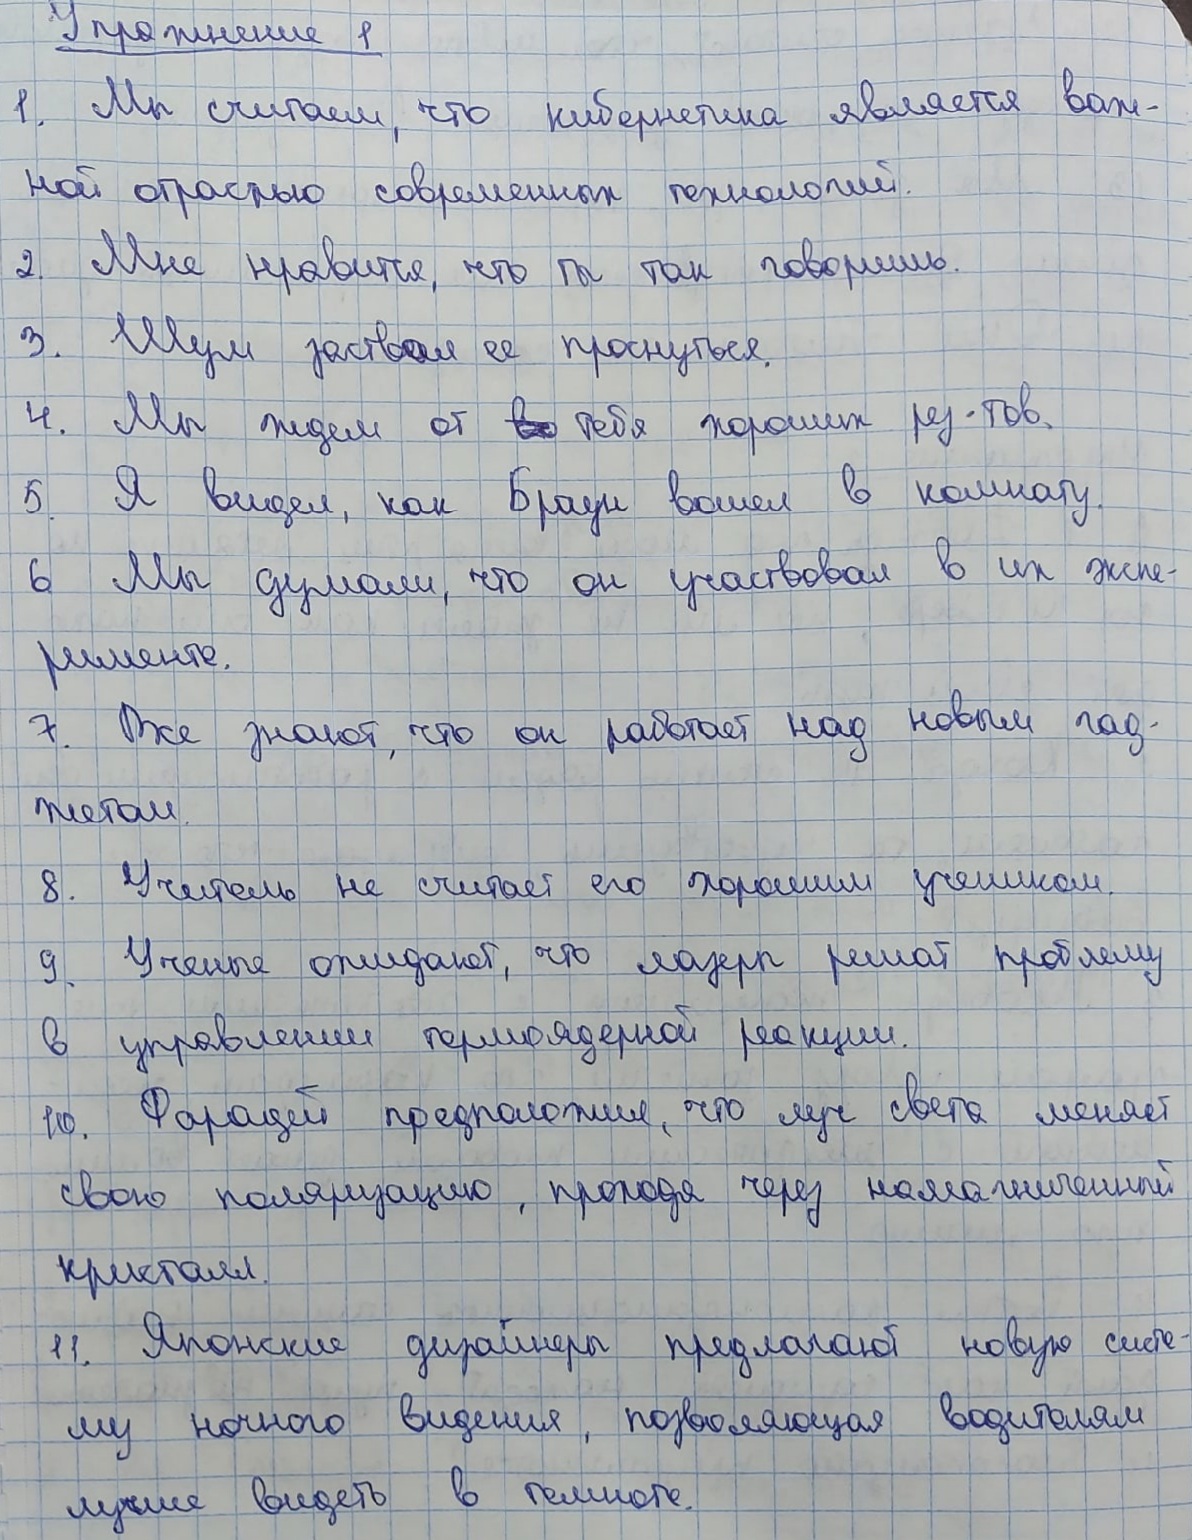 Упражнение 1
1. Мы считаем, что кибернетика является важ-
ной отраслью современных технологий.
2. Мне нравится, что ты так говоришь.
3. Шум заствал ее проснуться.
4. Мы ждем от тебя хороших рез-тов.
5. Я видел, как Браун вошел в комнату.
6 Мы думали, что он участвовал в их экспе-
рименте.
7. Все знают, что он работает над новым гад-
жетом.
8. Учитель не считает его хорошим учеником.
9. Ученые ожидают, что лазеры решат проблему
в управлении термоядерной реакции.
10. Фарадей предположил, что луч света меняет
свою поляризацию, проходя через намагниченный
кристалл.
11. Японские дизайнеры предлагают новую систе-
му ночного видения, позволяющая водителям
лучше видеть в темноте.